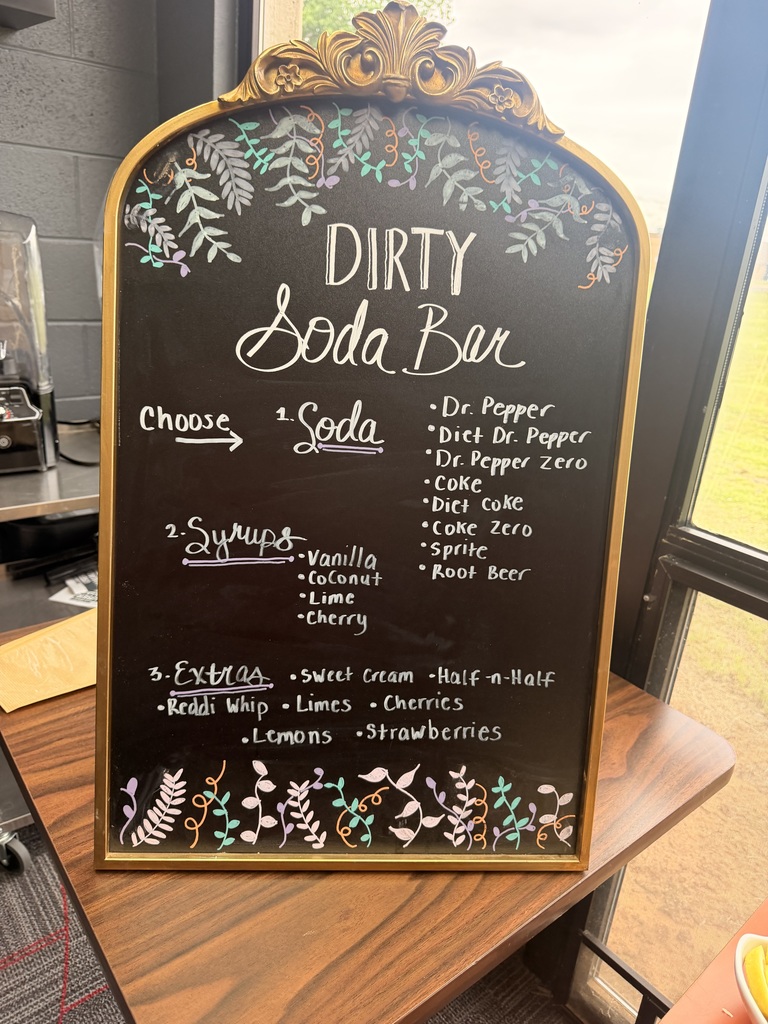 DIRTY
Soda Bar
Choose → 1. Soda
• Dr. Pepper
• Diet Dr. Pepper
• Dr. Pepper Zero
• Coke
• Diet Coke
• Coke Zero
• Sprite
• Root Beer
2. Syrups
• Vanilla
• Coconut
• Lime
• Cherry
3. Extras • Sweet Cream • Half-n-Half
• Reddi Whip • Limes • Cherries
• Lemons • Strawberries